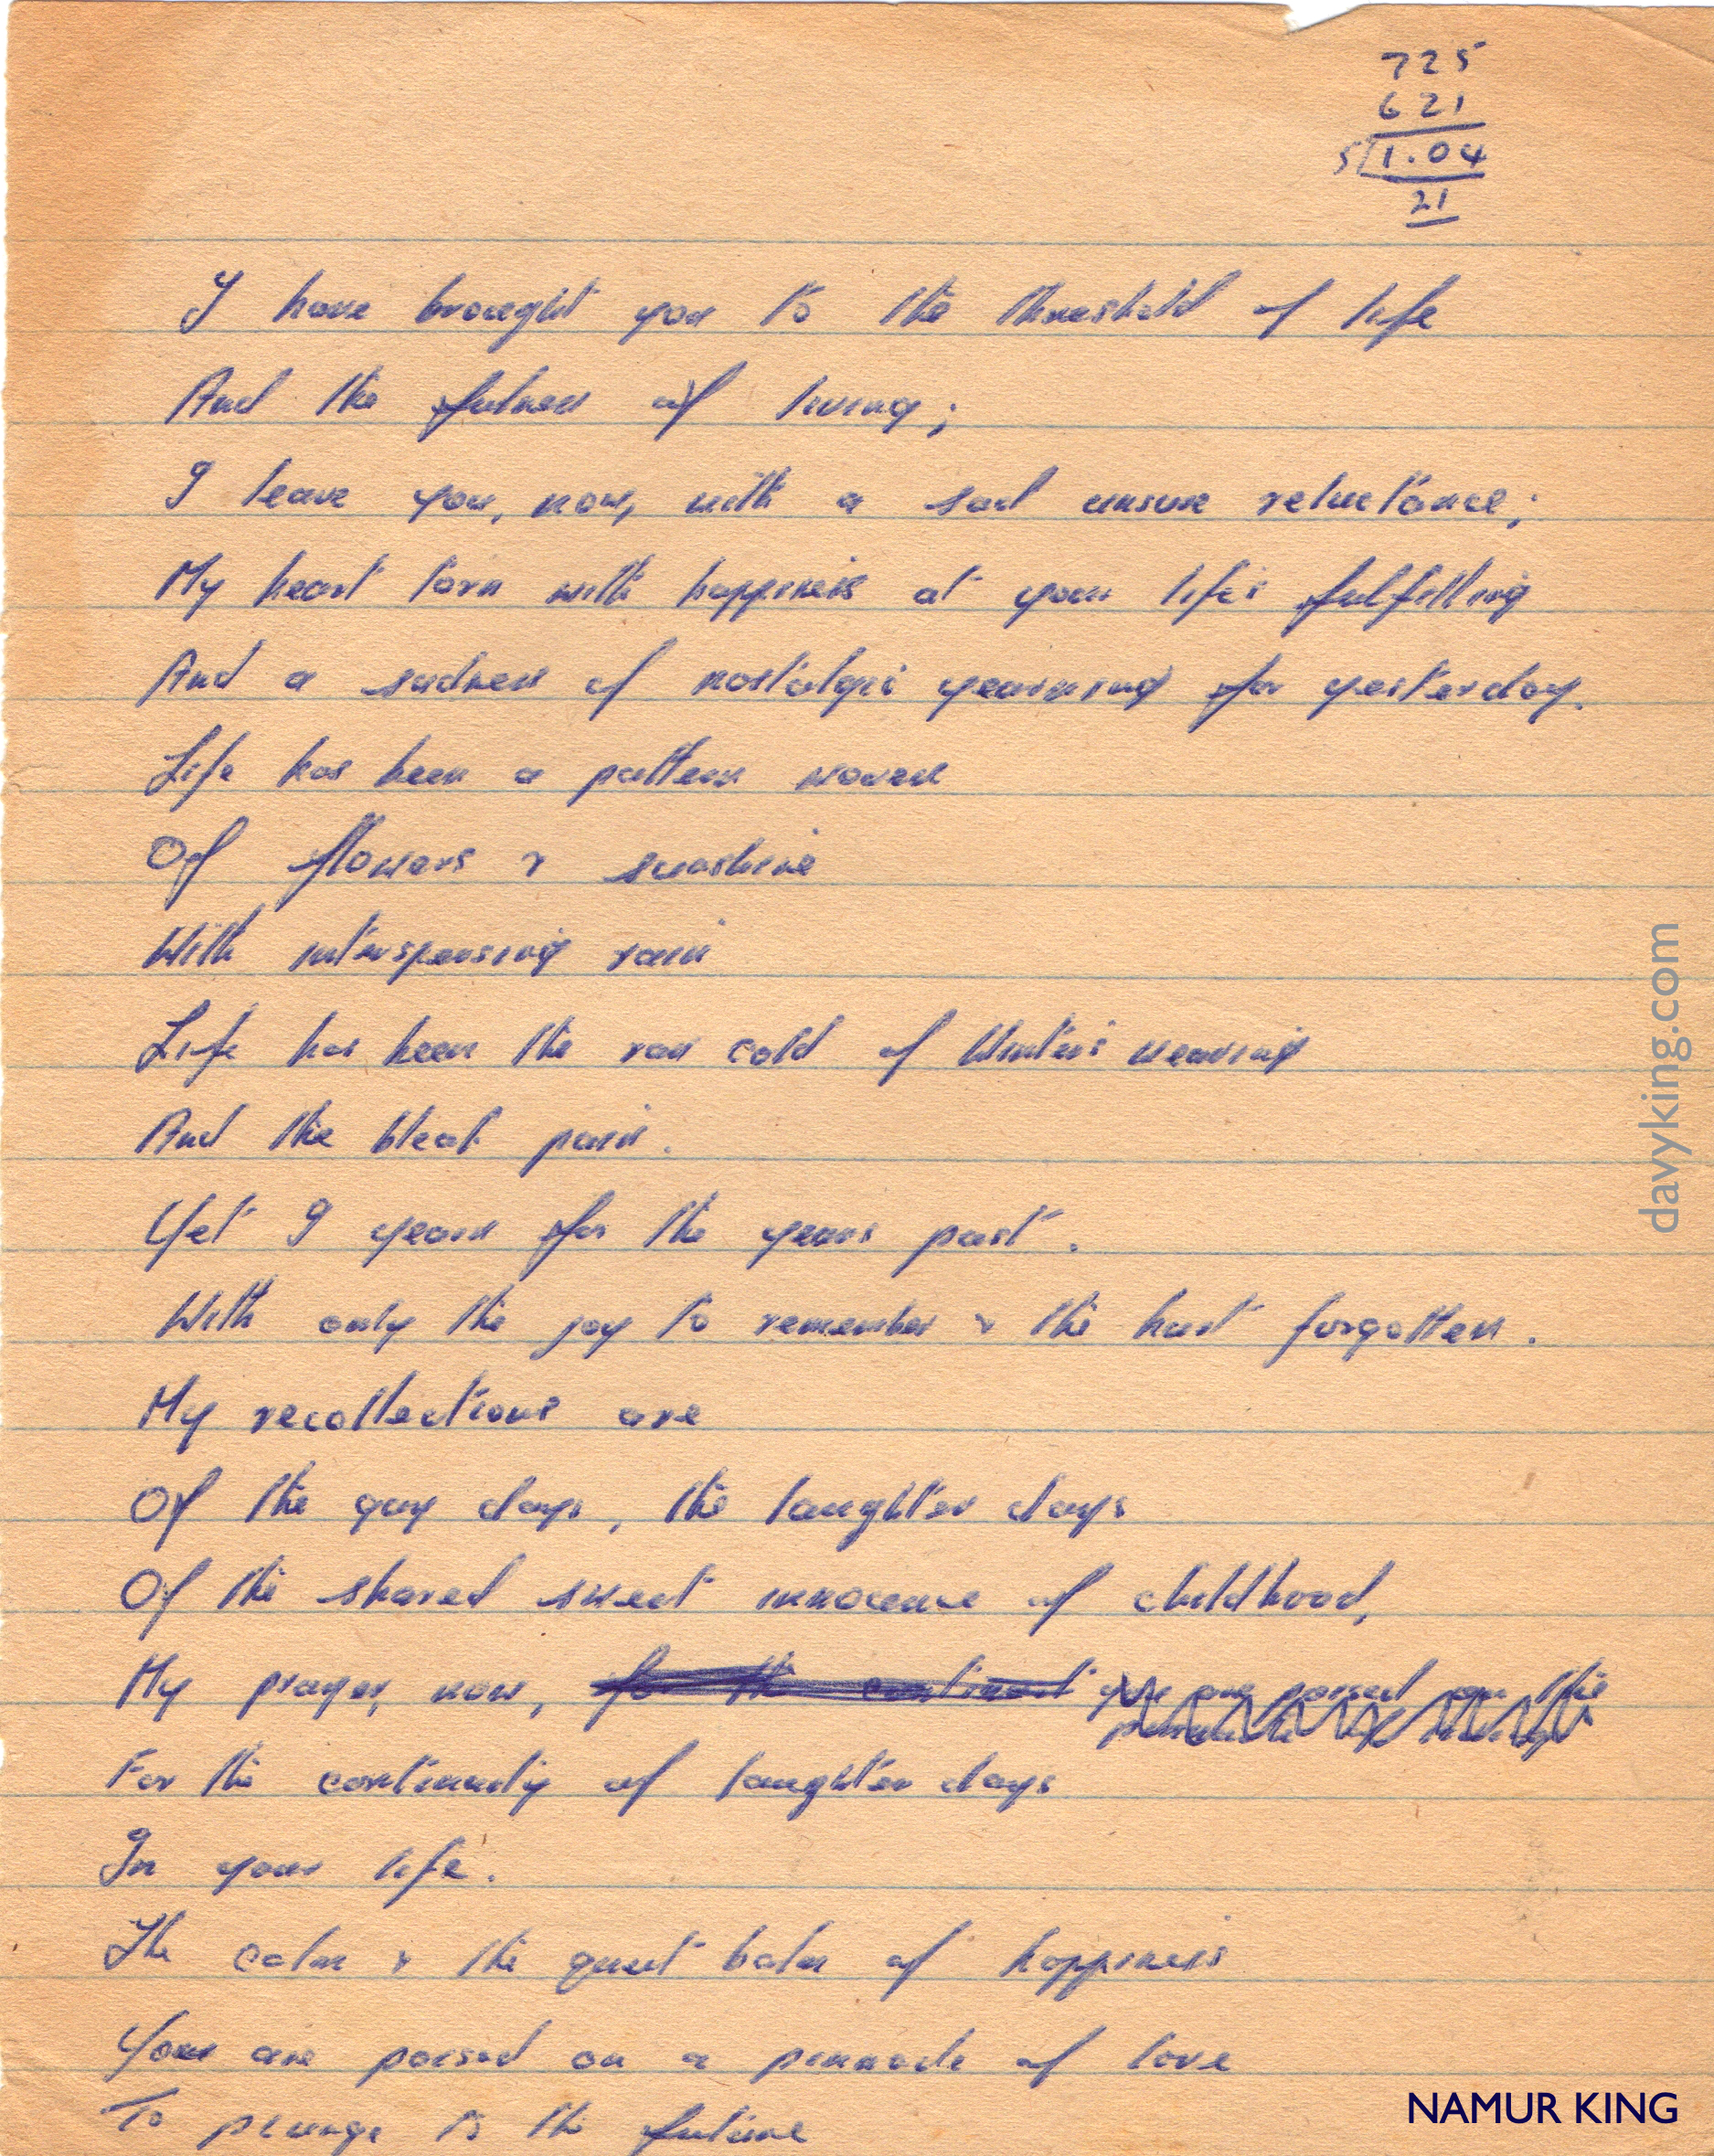 725
621
5 1.04
21
I have brought you to the threshold of life
And the fulness of living;
I leave you, now, with a sad unsure reluctance;
My heart torn with happiness at your life's fulfilling
And a sadness of nostalgic yearning for yesterday.
Life has been a pattern woven
Of flowers & sunshine
With interspersing rain
Life has been the raw cold of Winter's weaving
And the bleak pain.
Yet I yearn for the years past.
With only the joy to remember & the hurt forgotten.
My recollections are
Of the gay days, the laughter days
Of the shared sweet innocence of childhood,
My prayer, now, for the continued you are poised on the
pinnacle of
For the continuity of laughter days
In your life.
The calm & the quiet balm of happiness
You are poised on a pinnacle of love
To plunge to the future
davyking.com
NAMUR KING